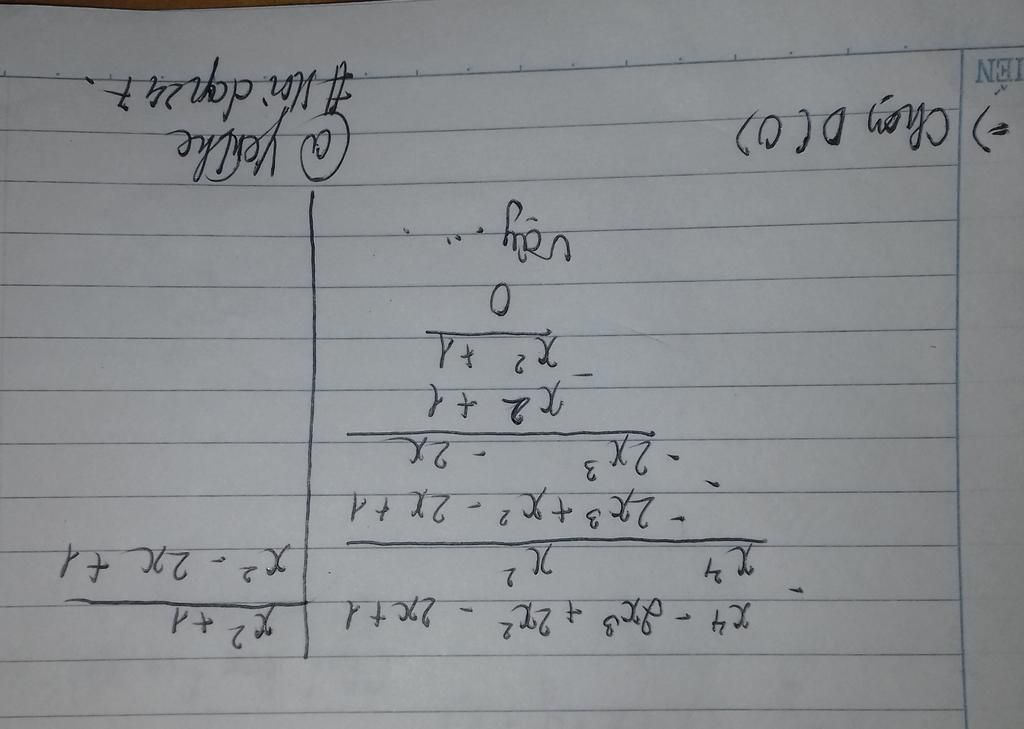 x⁴ - 2x³ + 2x² - 2x + 1 | x² + 1
- x⁴ x² | x² - 2x + 1
- 2x³ + x² - 2x + 1
- - 2x³ - 2x
x² + 1
- x² + 1
0
Vậy....
=) Chọn D(0)
#Hoidap247.
IEN